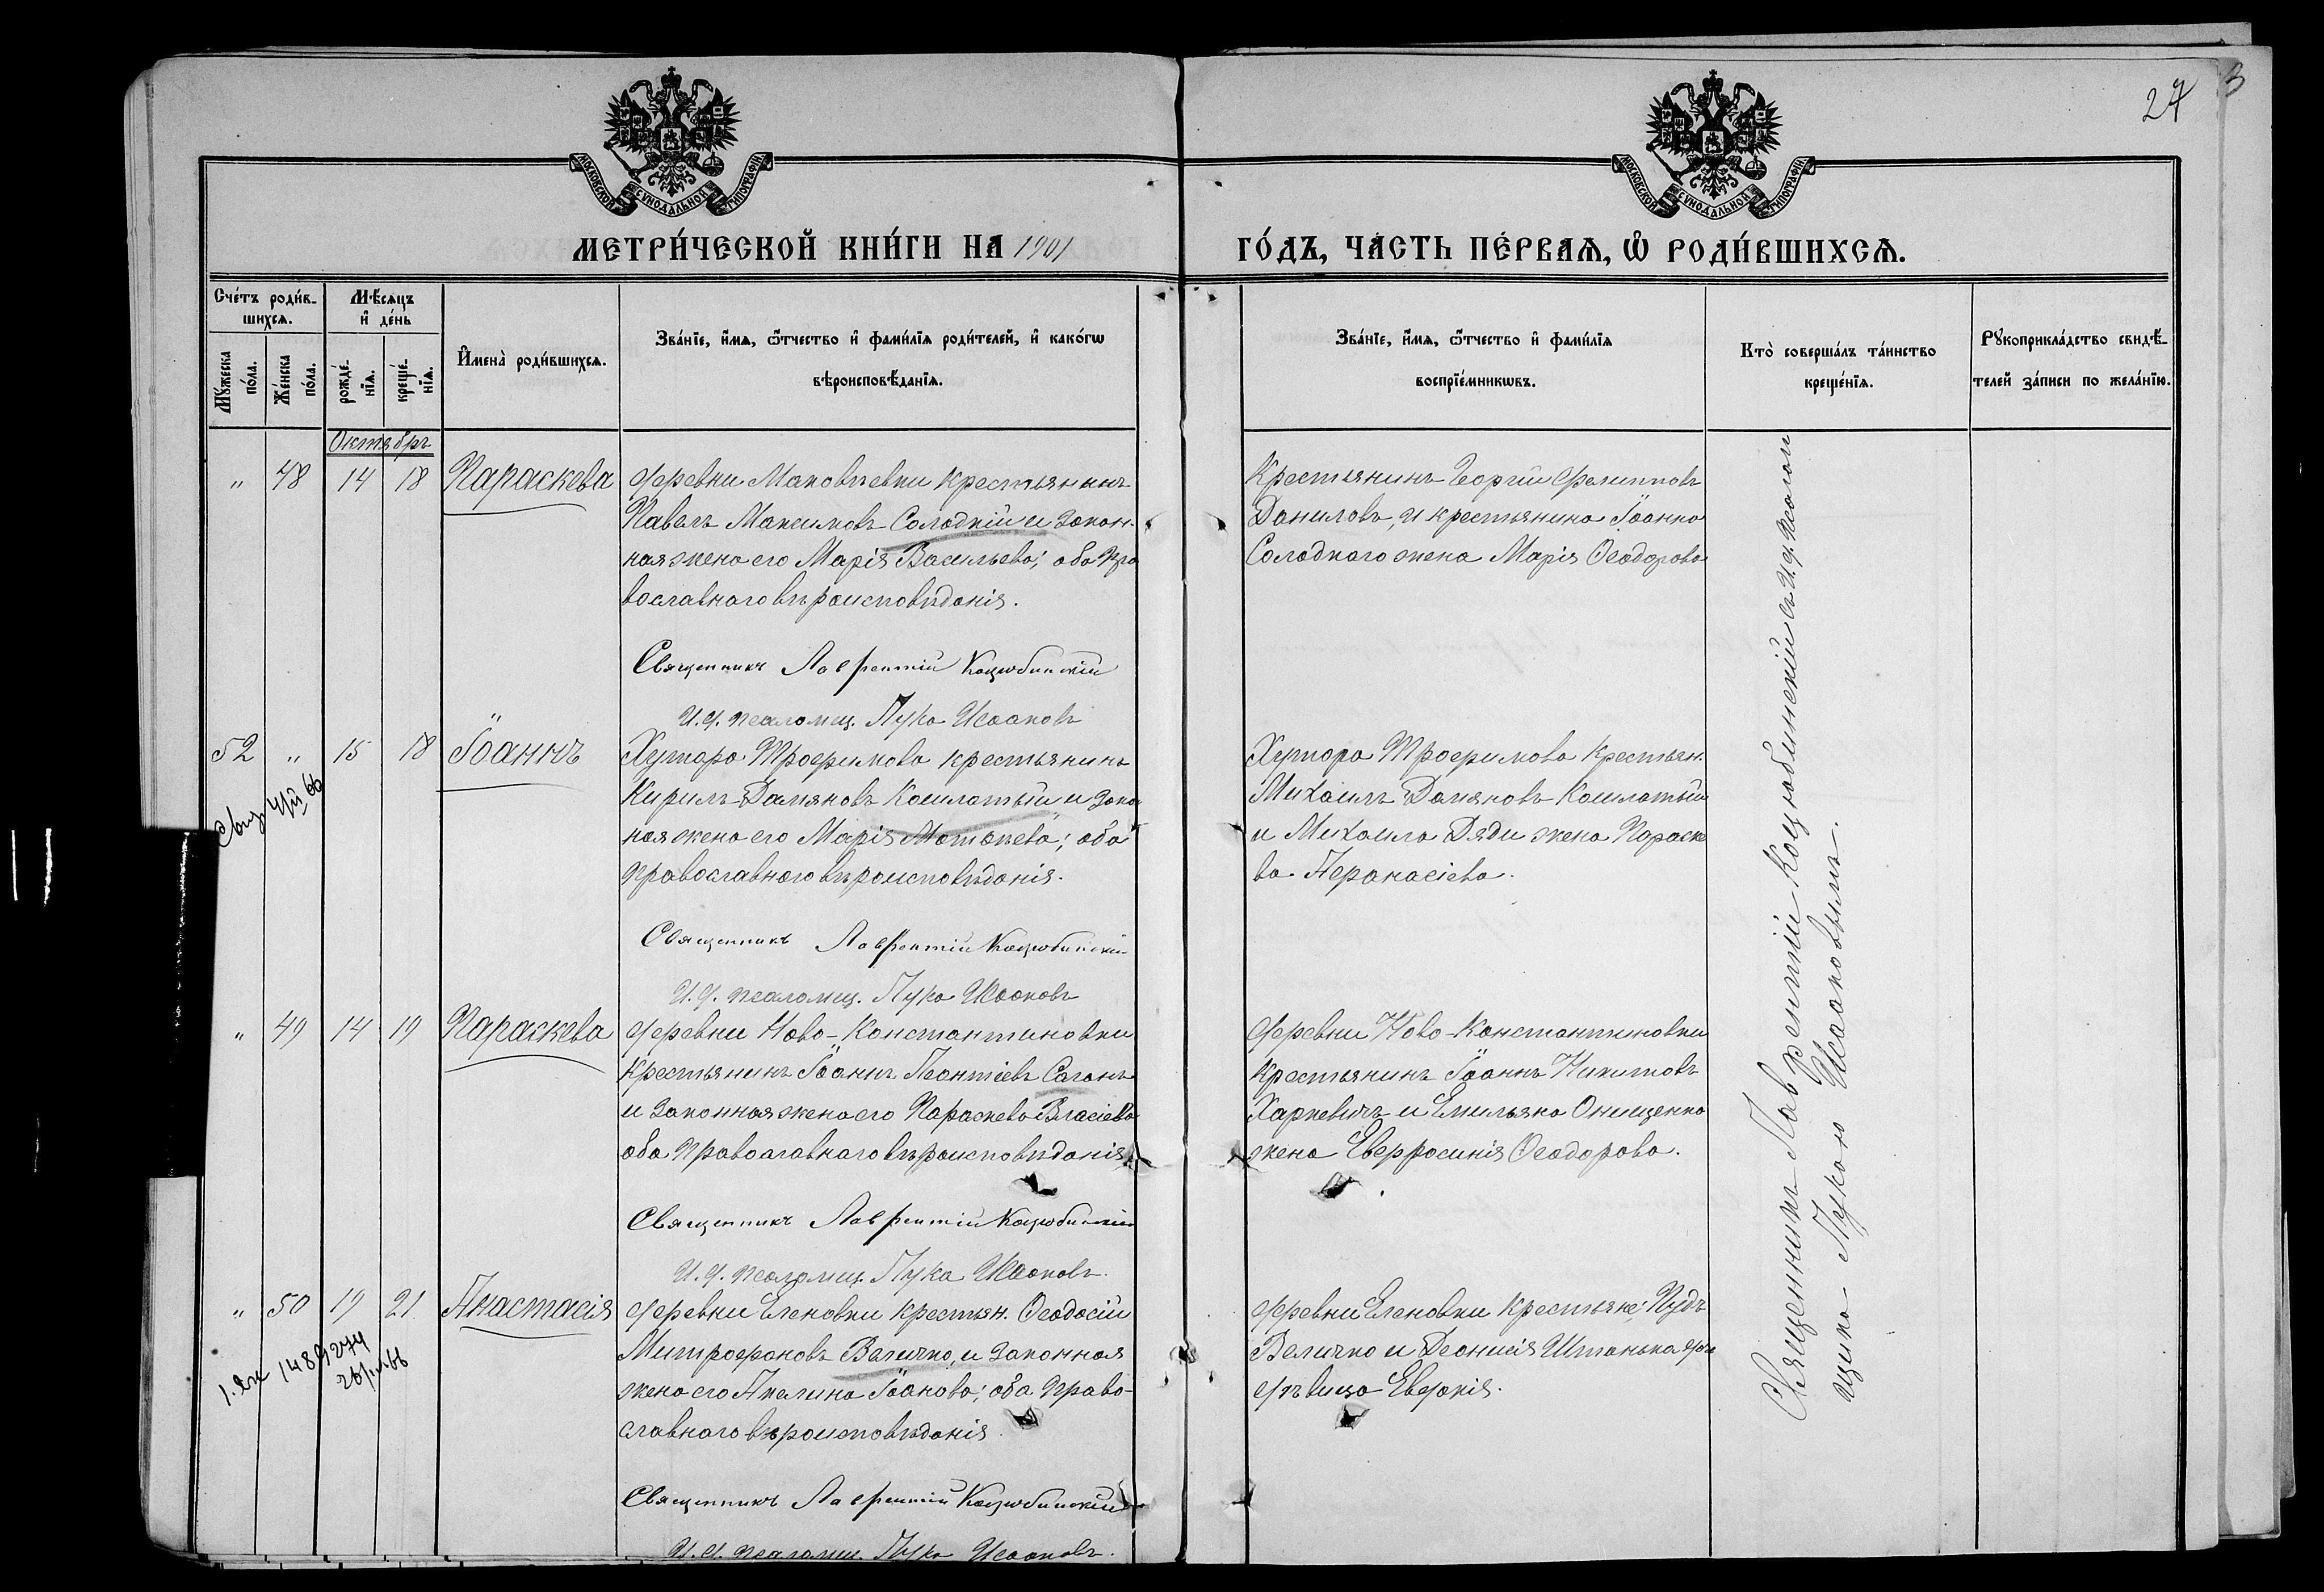 27
3
МОСКОВСКОЙ СУНОДАЛЬНОЙ ТИПОГРАФІИ
МОСКОВСКОЙ СУНОДАЛЬНОЙ ТИПОГРАФІИ
МЕТРИ́ЧЕСКОЙ КНИ́ГИ НА 1901
ГО́ДЪ, ЧА́СТЬ ПЕ́РВАѦ, Ѡ РОДИ́ВШИХСѦ.
Сче́тъ роди́в-
шихсѧ.
Мꙋ́жеска
по́ла.
Же́нска
по́ла.
Мѣ́сѧцъ
и҆ де́нь
рожде́-
нїѧ.
креще́-
нїѧ.
И҆мена̀ роди́вшихсѧ.
Зва́нїе, и҆́мѧ, ѻ҆́тчество и҆ фами́лїѧ роди́телей, и҆ како́гѡ
вѣроисповѣ́данїѧ.
Зва́нїе, и҆́мѧ, ѻ҆́тчество и҆ фами́лїѧ
воспрїе́мникѡвъ.
Кто̀ соверша́лъ та́инство
креще́нїѧ.
Рꙋкоприкла́дство свидѣ́-
телей за́писи по жела́нїю.
Октябрь
" 48 14 18 Параскева
деревни Маковѣевки крестьянинъ
Павелъ Максимовъ Солодкій и закон-
ная жена его Марія Васильева; оба пра
вославнаго вѣроисповѣданія.
Священникъ Лаврентій Коцюбинскій
И.д. псаломщ. Лука Исааковъ
Крестьянинъ Георгій Филипповъ
Даниловъ, и крестьянина Іоанна
Солодкаго жена Марія Ѳеодорова
52 " 15 18 Іоаннъ
Хутора Трофимова крестьянинъ
Кирилъ Даміановъ Кошлатый и зако
ная жена его Марія Матѳѣева; оба
православнаго вѣроисповѣданія.
Священникъ Лаврентій Коцюбинскій
И.д. псаломщ. Лука Исааковъ
Хутора Трофимова крестьян.
Михаилъ Даміановъ Кошлатый
и Михаила Дяди жена Параске
ва Аѳанасіева.
" 49 14 19 Параскева
деревни Ново-Константиновки
крестьянинъ Іоаннъ Леонтіевъ Саганъ
и законная жена его Параскева Власіева
оба православнаго вѣроисповѣданія
Священникъ Лаврентій Коцюбинскій
И.д. псаломщ. Лука Исааковъ.
деревни Ново-Константиновки
крестьянинъ Іоаннъ Никитовъ
Харкевичъ и Емильяна Онищенка
жена Евфросинія Ѳеодорова.
" 50 19 21 Анастасія
деревни Еленовки крестьян. Ѳеодосій
Митрофановъ Величко, и законная
жена его Акелина Іоанова; оба право-
славнаго вѣроисповѣданія.
Священникъ Лаврентій Коцюбинскій
И.д. псаломщ. Лука Исааковъ.
деревни Еленовки крестьяне: Іудъ
Величко и Деонисія Штанька
дѣвица Евдокія.
Священникъ Лаврентій Коцюбинскій съ И.д. псалом
щика Лукою Исааковымъ.